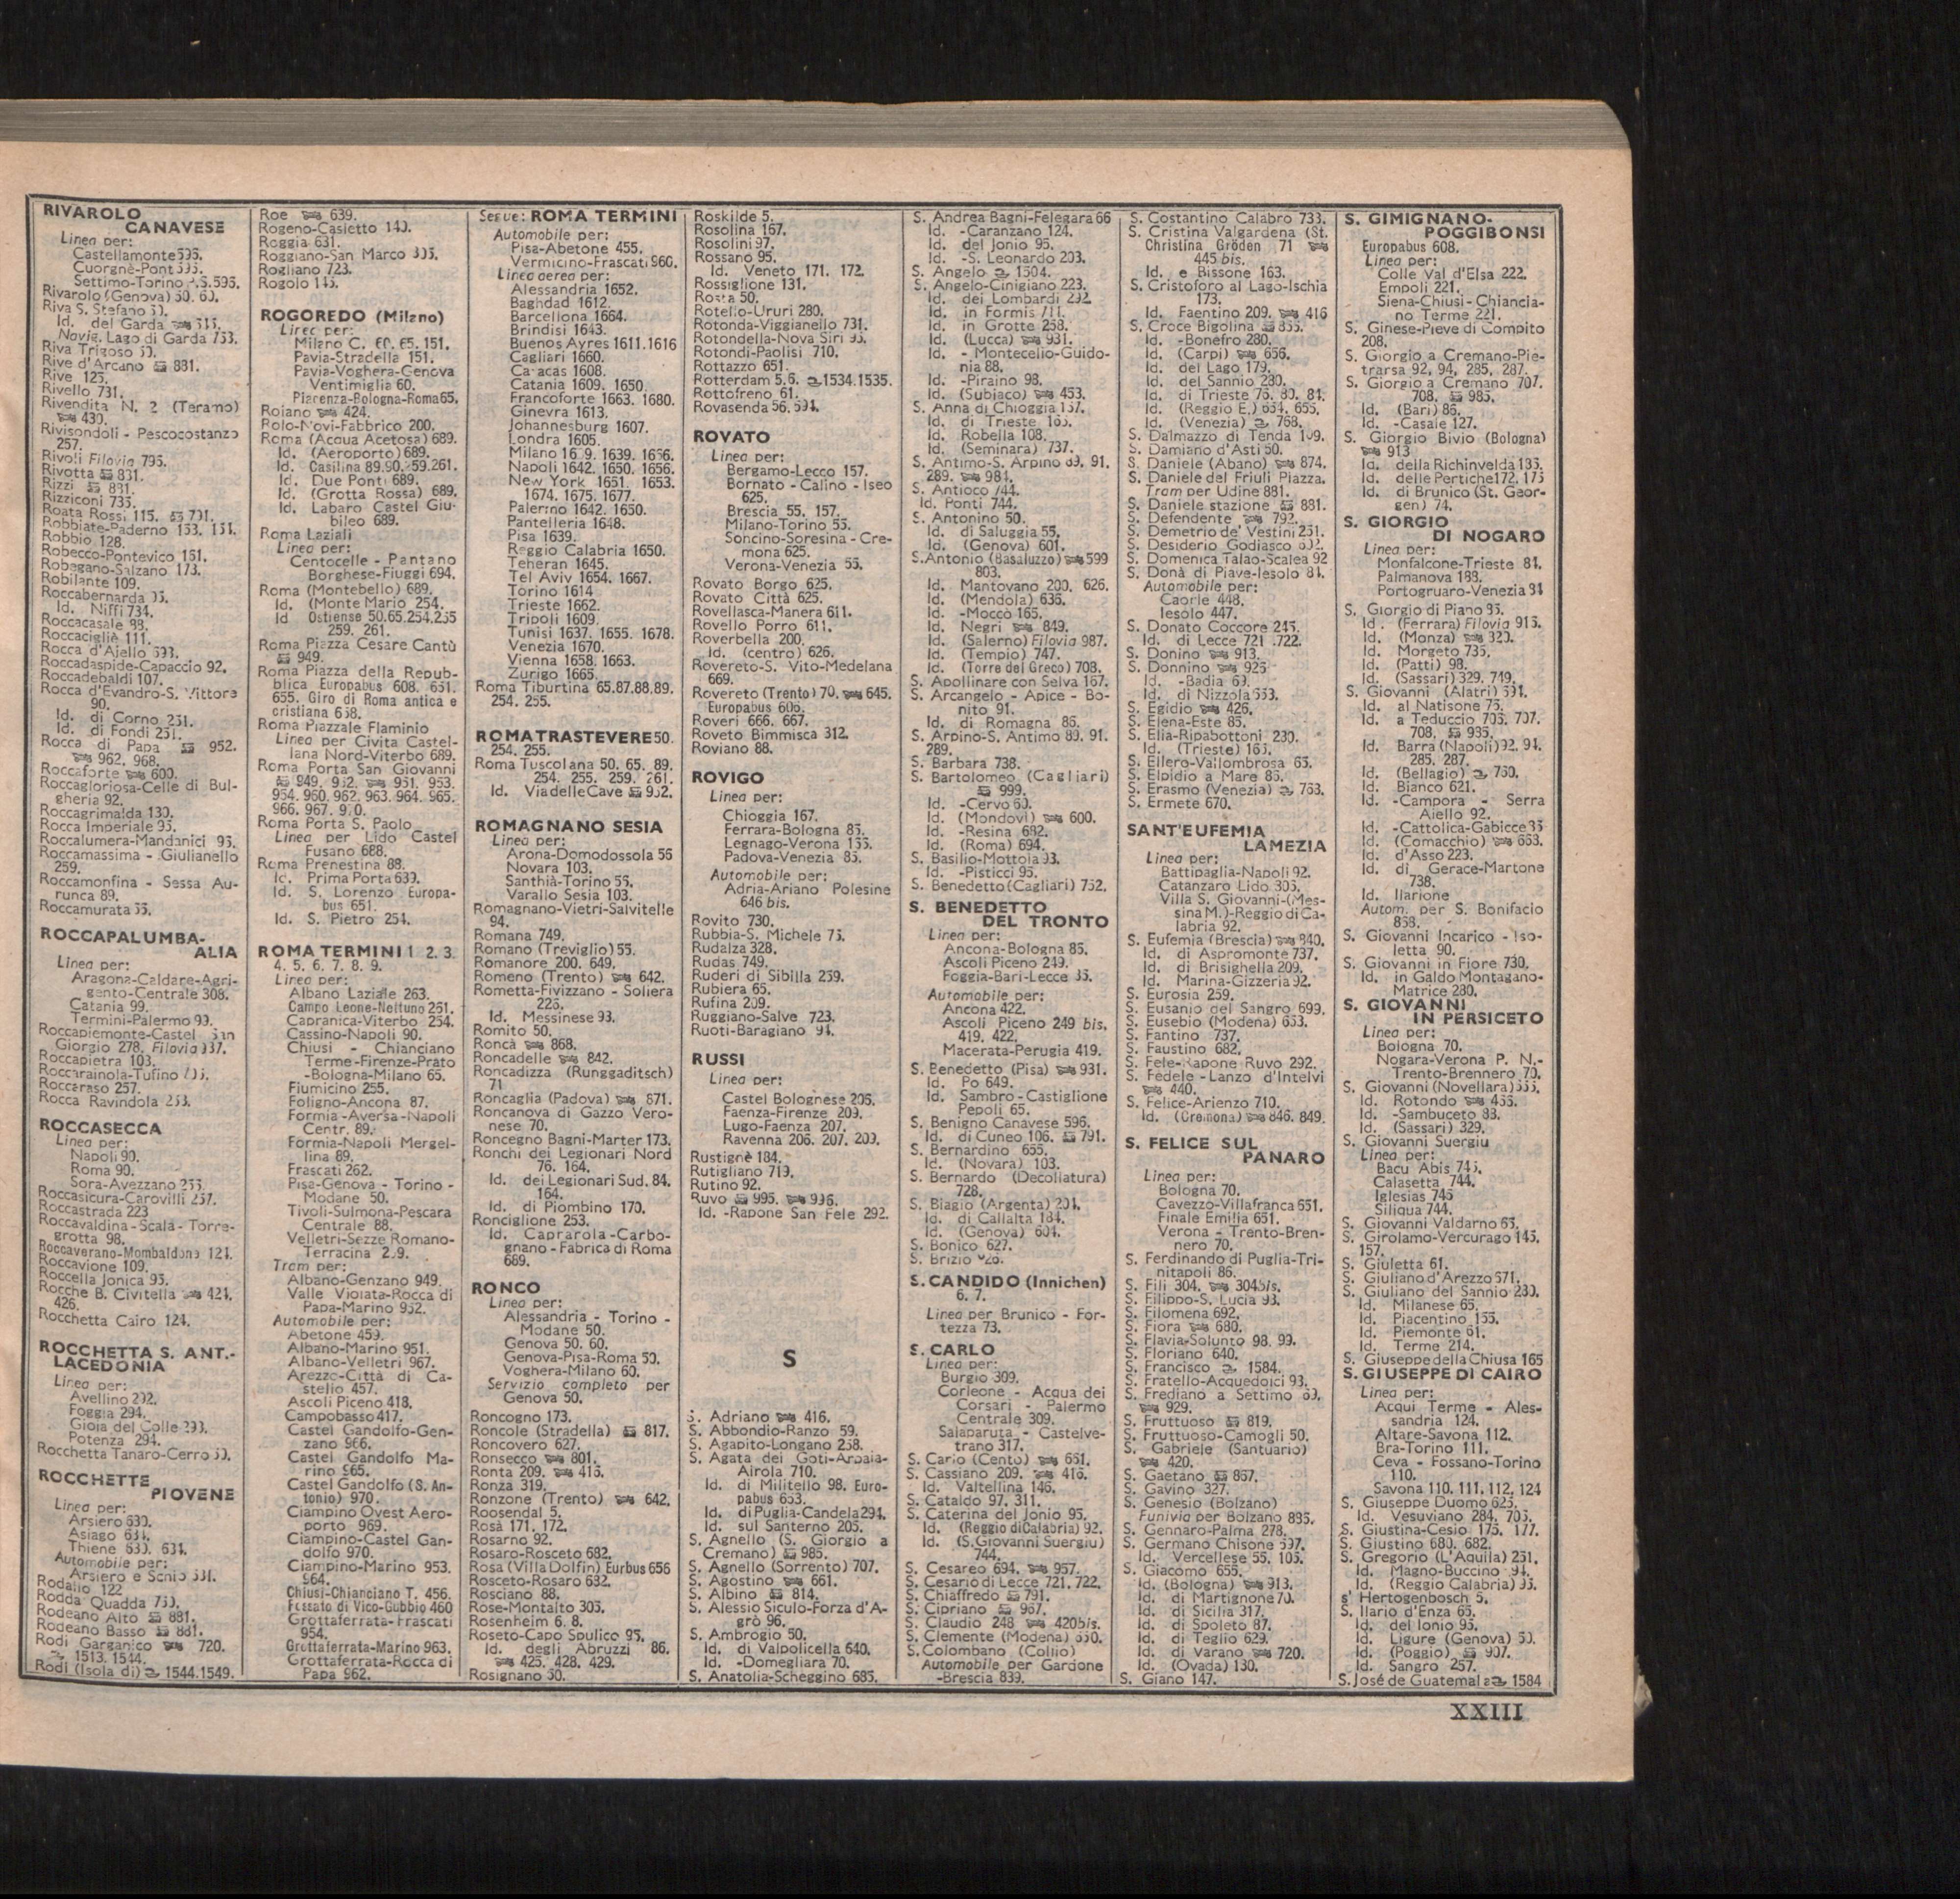 RIVAROLO
CANAVESE
Linea per:
Castellamonte 596.
Cuorgnè-Pont 596.
Settimo-Torino P.S. 596.
Rivarolo (Genova) 50. 60.
Riva S. Stefano 50.
Id. del Garda
Navig. Lago di Garda 753.
Riva Trigoso 50.
Rive d'Arcano 881.
Rive 125.
Rivello 731.
Rivendita N. 2 (Teramo)
430.
Rivisondoli - Pescocostanzo
257.
Rivoli Filovia 795.
Rivotta 831.
Rizzi 881.
Rizziconi 735.
Roata Rossi 115. 791.
Robbiate-Paderno 153. 154.
Robbio 128.
Robecco-Pontevico 151.
Robegano-Salzano 173.
Robilante 109.
Roccabernarda 95.
Id. Niffi 734.
Roccacasale 88.
Roccacigliè 111.
Rocca d'Ajello 693.
Roccadaspide-Capaccio 92.
Roccadebaldi 107.
Rocca d'Evandro-S. Vittore
90.
Id. di Corno 251.
Id. di Fondi 251.
Rocca di Papa 952.
962. 968.
Roccaforte 600.
Roccagloriosa-Celle di Bul-
gheria 92.
Roccagrimalda 130.
Rocca Imperiale 95.
Roccalumera-Mandanici 93.
Roccamassima - Giulianello
259.
Roccamonfina - Sessa Au-
runca 89.
Roccamurata 66.
ROCCAPALUMBA-
ALIA
Linea per:
Aragona-Caldare-Agri-
gento-Centrale 308.
Catania 99.
Termini-Palermo 99.
Roccapiemonte-Castel San
Giorgio 278. Filovia 987.
Roccapietra 103.
Roccarainola-Tufino 706.
Roccaraso 257.
Rocca Ravindola 258.
ROCCASECCA
Linea per:
Napoli 90.
Roma 90.
Sora-Avezzano 255.
Roccasicura-Carovilli 257.
Roccastrada 223
Roccavaldina - Scala - Torre-
grotta 98.
Roccaverano-Mombaldone 124.
Roccavione 109.
Roccella Jonica 95.
Rocche B. Civitella 424.
426.
Rocchetta Cairo 124.
ROCCHETTA S. ANT.-
LACEDONIA
Linea per:
Avellino 292.
Foggia 294.
Gioia del Colle 293.
Potenza 294.
Rocchetta Tanaro-Cerro 50.
ROCCHETTE
PIOVENE
Linea per:
Arsiero 630.
Asiago 634.
Thiene 630. 634.
Automobile per:
Arsiero e Schio 631.
Rodallo 122
Rodda Quadda 750.
Rodeano Alto 881.
Rodeano Basso 881.
Rodi Garganico 720.
1513. 1544.
Rodi (Isola di) 1544. 1549.
Roe 639.
Rogeno-Casletto 140.
Roggia 631.
Roggiano-San Marco 305.
Rogliano 723.
Rogolo 145.
ROGOREDO (Milano)
Linee per:
Milano C. 60. 65. 151.
Pavia-Stradella 151.
Pavia-Voghera-Genova
Ventimiglia 60.
Piacenza-Bologna-Roma 65.
Roiano 424.
Rolo-Novi-Fabbrico 200.
Roma (Acqua Acetosa) 689.
Id. (Aeroporto) 689.
Id. Casilina 89. 90. 259. 261.
Id. Due Ponti 689.
Id. (Grotta Rossa) 689.
Id. Labaro Castel Giu-
bileo 689.
Roma Laziali
Linea per:
Centocelle - Pantano
Borghese-Fiuggi 694.
Roma (Montebello) 689.
Id. (Monte Mario 254.
Id Ostiense 50. 65. 254. 255
259. 261.
Roma Piazza Cesare Cantù
949.
Roma Piazza della Repub-
blica Europabus 608. 651.
655. Giro di Roma antica e
cristiana 658.
Roma Piazzale Flaminio
Linea per Civita Castel-
lana Nord-Viterbo 689.
Roma Porta San Giovanni
949. 952. 951. 953.
954. 960. 962. 963. 964. 965.
966. 967. 970.
Roma Porta S. Paolo
Linea per Lido Castel
Fusano 688.
Roma Prenestina 88.
Id. Prima Porta 689.
Id. S. Lorenzo Europa-
bus 651.
Id. S. Pietro 254.
ROMA TERMINI 1 2. 3.
4. 5. 6. 7. 8. 9.
Linea per:
Albano Laziale 263.
Campo Leone-Nettuno 261.
Capranica-Viterbo 254.
Cassino-Napoli 90.
Chiusi - Chianciano
Terme-Firenze-Prato
-Bologna-Milano 65.
Fiumicino 255.
Foligno-Ancona 87.
Formia-Aversa-Napoli
Centr. 89.
Formia-Napoli Mergel-
lina 89.
Frascati 262.
Pisa-Genova - Torino -
Modane 50.
Tivoli-Sulmona-Pescara
Centrale 88.
Velletri-Sezze Romano-
Terracina 259.
Tram per:
Albano-Genzano 949.
Valle Violata-Rocca di
Papa-Marino 952.
Automobile per:
Abetone 459.
Albano-Marino 951.
Albano-Velletri 967.
Arezzo-Città di Ca-
stello 457.
Ascoli Piceno 418.
Campobasso 417.
Castel Gandolfo-Gen-
zano 966.
Castel Gandolfo Ma-
rino 965.
Castel Gandolfo (S. An-
tonio) 970.
Ciampino Ovest Aero-
porto 969.
Ciampino-Castel Gan-
dolfo 970.
Ciampino-Marino 953.
964.
Chiusi-Chianciano T. 456.
Fossato di Vico-Gubbio 460
Grottaferrata-Frascati
954.
Grottaferrata-Marino 963.
Grottaferrata-Rocca di
Papa 962.
Segue: ROMA TERMINI
Automobile per:
Pisa-Abetone 455.
Vermicino-Frascati 960.
Linea aerea per:
Alessandria 1652.
Baghdad 1612.
Barcellona 1664.
Brindisi 1643.
Buenos Ayres 1611. 1616
Cagliari 1660.
Caracas 1608.
Catania 1609. 1650.
Francoforte 1663. 1680.
Ginevra 1613.
Johannesburg 1607.
Londra 1605.
Milano 1639. 1656.
Napoli 1642. 1650. 1656.
New York 1651. 1653.
1674. 1675. 1677.
Palermo 1642. 1650.
Pantelleria 1648.
Pisa 1639.
Reggio Calabria 1650.
Teheran 1645.
Tel Aviv 1654. 1667.
Torino 1614
Trieste 1662.
Tripoli 1609.
Tunisi 1637. 1655. 1678.
Venezia 1670.
Vienna 1658. 1663.
Zurigo 1665.
Roma Tiburtina 65. 87. 88. 89.
254. 255.
ROMA TRASTEVERE 50.
254. 255.
Roma Tuscolana 50. 65. 89.
254. 255. 259. 261.
Id. Via delle Cave 952.
ROMAGNANO SESIA
Linea per:
Arona-Domodossola 56
Novara 103.
Santhià-Torino 56.
Varallo Sesia 103.
Romagnano-Vietri-Salvitelle
94.
Romana 749.
Romano (Treviglio) 55.
Romanore 200. 649.
Romeno (Trento) 642.
Rometta-Fivizzano - Soliera
226.
Id. Messinese 93.
Romito 50.
Roncà 868.
Roncadelle 842.
Roncadizza (Runggaditsch)
71
Roncaglia (Padova) 871.
Roncanova di Gazzo Vero-
nese 70.
Roncegno Bagni-Marter 173.
Ronchi dei Legionari Nord
76. 164.
Id. dei Legionari Sud. 84.
164.
Id. di Piombino 170.
Ronciglione 253.
Id. Caprarola-Carbo-
gnano - Fabrica di Roma
689.
RONCO
Linea per:
Alessandria - Torino -
Modane 50.
Genova 50. 60.
Genova-Pisa-Roma 50.
Voghera-Milano 60.
Servizio completo per
Genova 50.
Roncogno 173.
Roncole (Stradella) 817.
Roncovero 627.
Ronsecco 801.
Ronta 209. 415.
Ronza 319.
Ronzone (Trento) 642.
Roosendal 5.
Rosà 171. 172.
Rosarno 92.
Rosaro-Rosceto 682.
Rosa (Villa Dolfin) Eurbus 656
Rosceto-Rosaro 682.
Rosciano 88.
Rose-Montalto 305.
Rosenheim 6. 8.
Roseto-Capo Spulico 95.
Id. degli Abruzzi 86.
425. 428. 429.
Rosignano 50.
Roskilde 5.
Rosolina 167.
Rosolini 97.
Rossano 95.
Id. Veneto 171. 172.
Rossiglione 131.
Rosta 50.
Rotello-Ururi 280.
Rotonda-Viggianello 731.
Rotondella-Nova Siri 95.
Rotondi-Paolisi 710.
Rottazzo 651.
Rotterdam 5. 6. 1534. 1535.
Rottofreno 61.
Rovasenda 56. 594.
ROVATO
Linea per:
Bergamo-Lecco 157.
Bornato - Calino - Iseo
625.
Brescia 55. 157.
Milano-Torino 55.
Soncino-Soresina - Cre-
mona 625.
Verona-Venezia 55.
Rovato Borgo 625.
Rovato Città 625.
Rovellasca-Manera 611.
Rovello Porro 611.
Roverbella 200.
Id. (centro) 626.
Rovereto-S. Vito-Medelana
669.
Rovereto (Trento) 70. 645.
Europabus 606.
Roveri 666. 667.
Roveto Bimmisca 312.
Roviano 88.
ROVIGO
Linea per:
Chioggia 167.
Ferrara-Bologna 85.
Legnago-Verona 166.
Padova-Venezia 85.
Automobile per:
Adria-Ariano Polesine
646 bis.
Rovito 730.
Rubbia-S. Michele 75.
Rudalza 328.
Rudas 749.
Ruderi di Sibilla 259.
Rubiera 65.
Rufina 209.
Ruggiano-Salve 723.
Ruoti-Baragiano 94.
RUSSI
Linea per:
Castel Bolognese 206.
Faenza-Firenze 209.
Lugo-Faenza 207.
Ravenna 206. 207. 209.
Rustignè 184.
Rutigliano 719.
Rutino 92.
Ruvo 995. 996.
Id. -Rapone San Fele 292.
S
S. Adriano 416.
S. Abbondio-Ranzo 59.
S. Agapito-Longano 258.
S. Agata dei Goti-Arpaia-
Airola 710.
Id. di Militello 98. Euro-
pabus 653.
Id. di Puglia-Candela 294.
Id. sul Santerno 206.
S. Agnello (S. Giorgio a
Cremano) 985.
S. Agnello (Sorrento) 707.
S. Agostino 661.
S. Albino 814.
S. Alessio Siculo-Forza d'A-
grò 96.
S. Ambrogio 50.
Id. di Valpolicella 640.
Id. -Domegliara 70.
S. Anatolia-Scheggino 685.
S. Andrea Bagni-Felegara 66
Id. -Caranzano 124.
Id. del Jonio 95.
Id. -S. Leonardo 203.
S. Angelo 1504.
S. Angelo-Cinigiano 223.
Id. dei Lombardi 292.
Id. in Formis 711.
Id. in Grotte 258.
Id. (Lucca) 931.
Id. - Montecelio-Guido-
nia 88.
Id. -Piraino 98.
Id. (Subiaco) 453.
S. Anna di Chioggia 167.
Id. di Trieste 165.
Id. Robella 108.
Id. (Seminara) 737.
S. Antimo-S. Arpino 89. 91.
289. 984.
S. Antioco 744.
Id. Ponti 744.
S. Antonino 50.
Id. di Saluggia 55.
Id. (Genova) 601.
S. Antonio (Basaluzzo) 599
803.
Id. Mantovano 200. 626.
Id. (Mendola) 636.
Id. -Mocco 165.
Id. Negri 849.
Id. (Salerno) Filovia 987.
Id. (Tempio) 747.
Id. (Torre del Greco) 708.
S. Apollinare con Selva 167.
S. Arcangelo - Apice - Bo-
nito 91.
Id. di Romagna 86.
S. Arpino-S. Antimo 89. 91.
289.
S. Barbara 738.
S. Bartolomeo (Cagliari)
999.
Id. -Cervo 60.
Id. (Mondovì) 600.
Id. -Resina 682.
Id. (Roma) 694.
S. Basilio-Mottola 93.
Id. -Pisticci 95.
S. Benedetto (Cagliari) 752.
S. BENEDETTO
DEL TRONTO
Linea per:
Ancona-Bologna 86.
Ascoli Piceno 249.
Foggia-Bari-Lecce 86.
Automobile per:
Ancona 422.
Ascoli Piceno 249 bis.
419. 422.
Macerata-Perugia 419.
S. Benedetto (Pisa) 931.
Id. Po 649.
Id. Sambro-Castiglione
Pepoli 65.
S. Benigno Canavese 596.
Id. di Cuneo 106. 791.
S. Bernardino 655.
Id. (Novara) 103.
S. Bernardo (Decollatura)
728.
S. Biagio (Argenta) 204.
Id. di Callalta 184.
Id. (Genova) 604.
S. Bonico 627.
S. Brizio 926.
S. CANDIDO (Innichen)
6. 7.
Linea per Brunico - For-
tezza 73.
S. CARLO
Linea per:
Burgio 309.
Corleone - Acqua dei
Corsari - Palermo
Centrale 309.
Salaparuta - Castelve-
trano 317.
S. Carlo (Cento) 661.
S. Cassiano 209. 416.
Id. Valtellina 146.
S. Cataldo 97. 311.
S. Caterina del Jonio 95.
Id. (Reggio di Calabria) 92.
Id. (S. Giovanni Suergiu)
744.
S. Cesareo 694. 957.
S. Cesario di Lecce 721. 722.
S. Chiaffredo 791.
S. Cipriano 967.
S. Claudio 248 420bis.
S. Clemente (Modena) 650.
S. Colombano (Collio)
Automobile per Gardone
-Brescia 839.
S. Costantino Calabro 733.
S. Cristina Valgardena (St.
Christina Gröden 71
445 bis.
Id. e Bissone 163.
S. Cristoforo al Lago-Ischia
173.
Id. Faentino 209. 416
S. Croce Bigolina 855.
Id. -Bonefro 280.
Id. (Carpi) 656.
Id. del Lago 179.
Id. del Sannio 280.
Id. di Trieste 76. 80. 84.
Id. (Reggio E.) 654. 655.
Id. (Venezia) 768.
S. Dalmazzo di Tenda 109.
S. Damiano d'Asti 50.
S. Daniele (Abano) 874.
S. Daniele del Friuli Piazza.
Tram per Udine 881.
S. Daniele stazione 881.
S. Defendente 792.
S. Demetrio de' Vestini 251.
S. Desiderio Godiasco 602.
S. Domenica Talao-Scalea 92
S. Donà di Piave-Jesolo 84.
Automobile per:
Caorle 448.
Iesolo 447.
S. Donato Coccore 245.
Id. di Lecce 721. 722.
S. Donino 913.
S. Donnino 926
Id. -Badia 69.
Id. di Nizzola 653.
S. Egidio 426.
S. Elena-Este 85.
S. Elia-Ripabottoni 280.
Id. (Trieste) 165.
S. Ellero-Vallombrosa 65.
S. Elpidio a Mare 86.
S. Erasmo (Venezia) 763.
S. Ermete 670.
SANT'EUFEMIA
LAMEZIA
Linea per:
Battipaglia-Napoli 92.
Catanzaro Lido 305.
Villa S. Giovanni-(Mes-
sina M.)-Reggio di Ca-
labria 92.
S. Eufemia (Brescia) 840.
Id. di Aspromonte 737.
Id. di Brisighella 209.
Id. Marina-Gizzeria 92.
S. Eurosia 259.
S. Eusanio del Sangro 699.
S. Eusebio (Modena) 653.
S. Fantino 737.
S. Faustino 682.
S. Fele-Rapone Ruvo 292.
S. Fedele - Lanzo d'Intelvi
440.
S. Felice-Arienzo 710.
Id. (Cremona) 846. 849.
S. FELICE SUL
PANARO
Linea per:
Bologna 70.
Cavezzo-Villafranca 651.
Finale Emilia 651.
Verona - Trento-Bren-
nero 70.
S. Ferdinando di Puglia-Tri-
nitapoli 86.
S. Fili 304. 304bis.
S. Filippo-S. Lucia 93.
S. Filomena 692.
S. Fiora 680.
S. Flavia-Solunto 98. 99.
S. Floriano 640.
S. Francisco 1584.
S. Fratello-Acquedolci 93.
S. Frediano a Settimo 69.
929.
S. Fruttuoso 819.
S. Fruttuoso-Camogli 50.
S. Gabriele (Santuario)
420.
S. Gaetano 867.
S. Gavino 327.
S. Genesio (Bolzano)
Funivia per Bolzano 885.
S. Gennaro-Palma 278.
S. Germano Chisone 597.
Id. Vercellese 55. 105.
S. Giacomo 655.
Id. (Bologna) 913.
Id. di Martignone 70.
Id. di Sicilia 317.
Id. di Spoleto 87.
Id. di Teglio 629.
Id. di Varano 720.
Id. (Ovada) 130.
S. Giano 147.
S. GIMIGNANO-
POGGIBONSI
Europabus 608.
Linea per:
Colle Val d'Elsa 222.
Empoli 221.
Siena-Chiusi - Chiancia-
no Terme 221.
S. Ginese-Pieve di Compito
208.
S. Giorgio a Cremano-Pie-
trarsa 92. 94. 285. 287.
S. Giorgio a Cremano 707.
708. 985.
Id. (Bari) 86.
Id. -Casale 127.
S. Giorgio Bivio (Bologna)
913
Id. della Richinvelda 185.
Id. delle Pertiche 172. 175
Id. di Brunico (St. Geor-
gen) 74.
S. GIORGIO
DI NOGARO
Linea per:
Monfalcone-Trieste 84.
Palmanova 188.
Portogruaro-Venezia 84
S. Giorgio di Piano 85.
Id. (Ferrara) Filovia 915.
Id. (Monza) 820.
Id. Morgeto 735.
Id. (Patti) 98.
Id. (Sassari) 329. 749.
S. Giovanni (Alatri) 694.
Id. al Natisone 75.
Id. a Teduccio 705. 707.
708. 985.
Id. Barra (Napoli) 92. 94.
285. 287.
Id. (Bellagio) 760.
Id. Bianco 621.
Id. -Campora - Serra
Aiello 92.
Id. -Cattolica-Gabicce 86
Id. (Comacchio) 663.
Id. d'Asso 223.
Id. di Gerace-Martone
738.
Id. Ilarione
Autom. per S. Bonifacio
868.
S. Giovanni Incarico - Iso-
letta 90.
S. Giovanni in Fiore 730.
Id. in Galdo Montagano-
Matrice 280.
S. GIOVANNI
IN PERSICETO
Linea per:
Bologna 70.
Nogara-Verona P. N.-
Trento-Brennero 70.
S. Giovanni (Novellara) 655.
Id. Rotondo 455.
Id. -Sambuceto 88.
Id. (Sassari) 329.
S. Giovanni Suergiu
Linea per:
Bacu Abis 745.
Calasetta 744.
Iglesias 745
Siliqua 744.
S. Giovanni Valdarno 65.
S. Girolamo-Vercurago 145.
157.
S. Giuletta 61.
S. Giuliano d'Arezzo 671.
S. Giuliano del Sannio 280.
Id. Milanese 65.
Id. Piacentino 155.
Id. Piemonte 61.
Id. Terme 214.
S. Giuseppe della Chiusa 165
S. GIUSEPPE DI CAIRO
Linea per:
Acqui Terme - Ales-
sandria 124.
Altare-Savona 112.
Bra-Torino 111.
Ceva - Fossano-Torino
110.
Savona 110. 111. 112. 124
S. Giuseppe Duomo 625.
Id. Vesuviano 284. 705.
S. Giustina-Cesio 175. 177.
S. Giustino 680. 682.
S. Gregorio (L'Aquila) 251.
Id. Magno-Buccino 94.
Id. (Reggio Calabria) 95.
s' Hertogenbosch 5.
S. Ilario d'Enza 65.
Id. del Ionio 95.
Id. Ligure (Genova) 50.
Id. (Poggio) 907.
Id. Sangro 257.
S. José de Guatemala 1584
XXIII